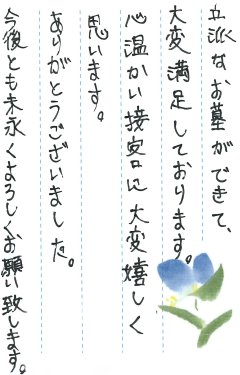 立派なお墓ができて、
大変満足しております。
心温かい接客に大変嬉しく
思います。
ありがとうございました。
今後とも末永くよろしくお願い致します。